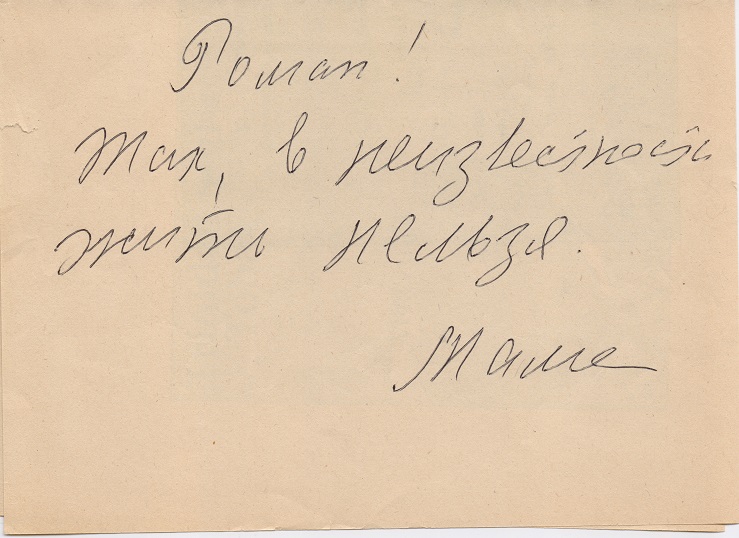 Роман!
Так, в неизвестности
жить нельзя.
Мама